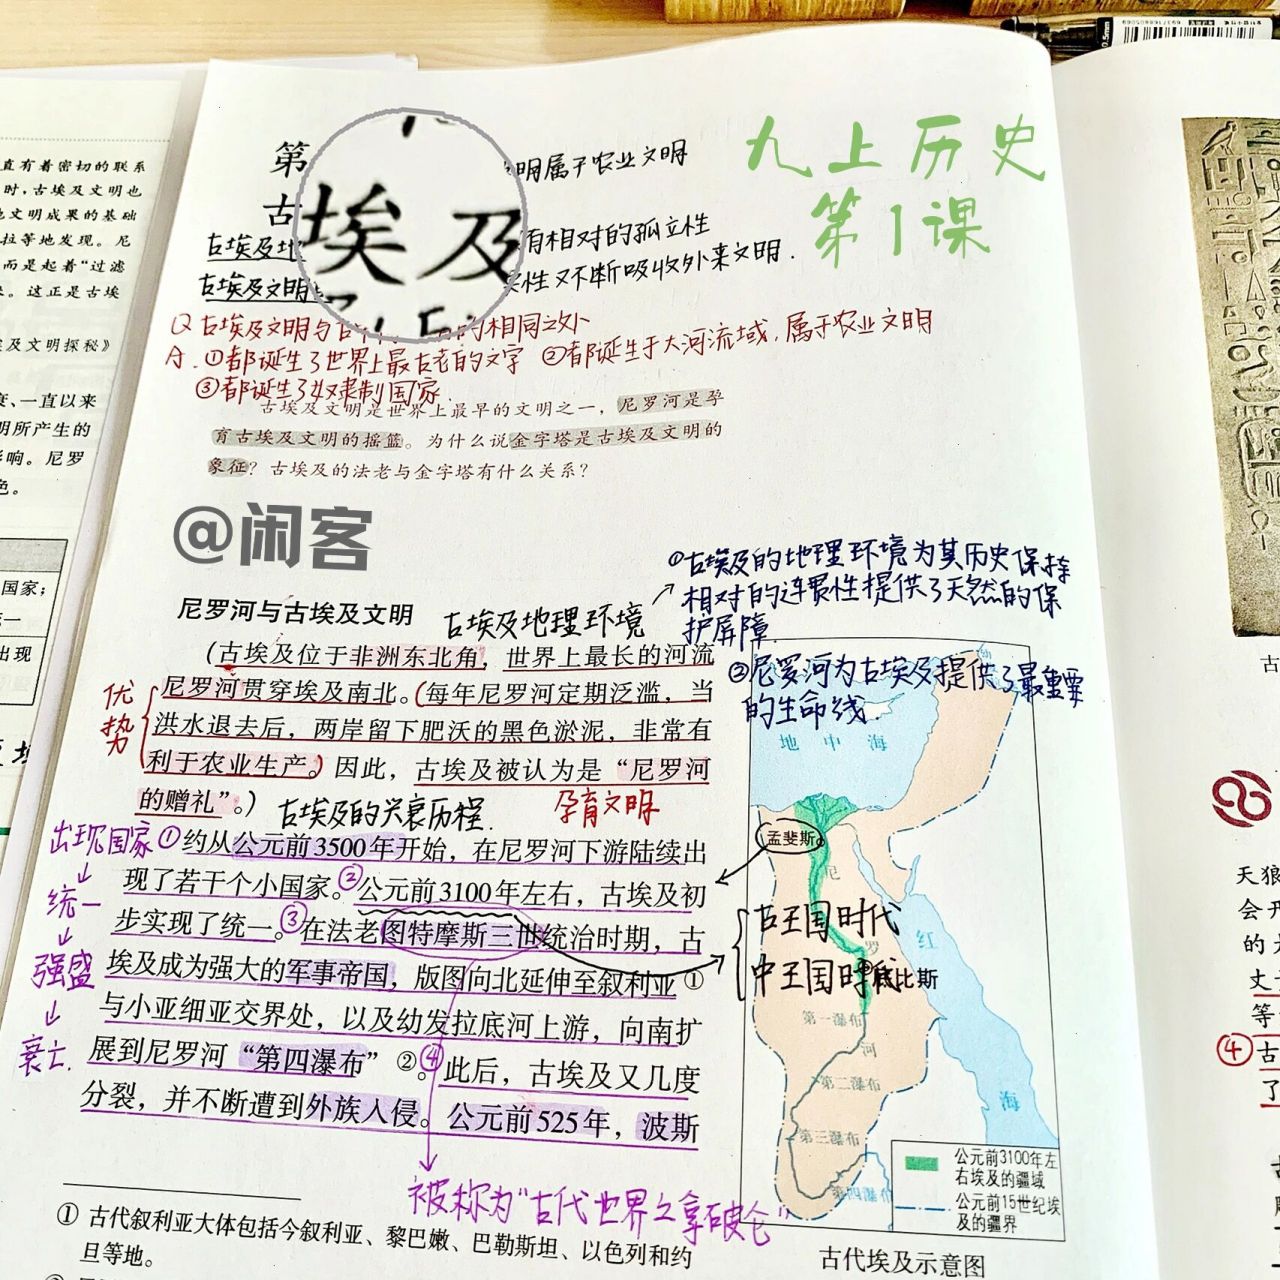 九上历史
第1课
第
明属于农业文明
古
埃及
古埃及地
有相对的孤立性
古埃及文明
性又不断吸收外来文明.
Q 古埃及文明与古
相同之处
A. ①都诞生了世界上最古老的文字 ②都诞生于大河流域,属于农业文明
③都诞生了奴隶制国家.
古埃及文明是世界上最早的文明之一，尼罗河是孕
育古埃及文明的摇篮。为什么说金字塔是古埃及文明的
象征？古埃及的法老与金字塔有什么关系？
@闲客
①古埃及的地理环境为其历史保持
相对的连贯性提供了天然的保
护屏障.
②尼罗河为古埃及提供了最重要
的生命线.
尼罗河与古埃及文明
古埃及地理环境
(古埃及位于非洲东北角，世界上最长的河流
尼罗河贯穿埃及南北。(每年尼罗河定期泛滥，当
洪水退去后，两岸留下肥沃的黑色淤泥，非常有
利于农业生产。)因此，古埃及被认为是“尼罗河
的赠礼”。)
优势
古埃及的兴衰历程.
孕育文明
①约从公元前3500年开始，在尼罗河下游陆续出
现了若干个小国家。②公元前3100年左右，古埃及初
步实现了统一。③在法老图特摩斯三世统治时期，古
埃及成为强大的军事帝国，版图向北延伸至叙利亚①
与小亚细亚交界处，以及幼发拉底河上游，向南扩
展到尼罗河“第四瀑布”②。④此后，古埃及又几度
分裂，并不断遭到外族入侵。公元前525年，波斯
出现国家
↓
统一
↓
强盛
↓
衰亡.
被称为“古代世界之拿破仑”
古王国时代
中王国时代
地中海
孟斐斯
尼
罗
河
底比斯
红
海
第一瀑布
第二瀑布
第三瀑布
第四瀑布
公元前3100年左
右埃及的疆域
公元前15世纪埃
及的疆界
古代埃及示意图
①古代叙利亚大体包括今叙利亚、黎巴嫩、巴勒斯坦、以色列和约
旦等地。
直有着密切的联系
时，古埃及文明也
文明成果的基础
拉等地发现。尼
而是起着“过滤
。这正是古埃
及文明探秘》
、一直以来
明所产生的
影响。尼罗
色。
国家；
一
出现
古
天狼
会开
的
丈
等
④古
了